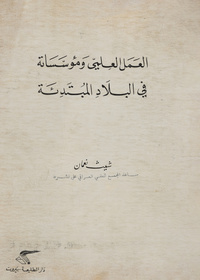 العمل العلمي ومؤسساته
في البلاد المبتدئة
شيث نعمان
دار الطليعة بيروت